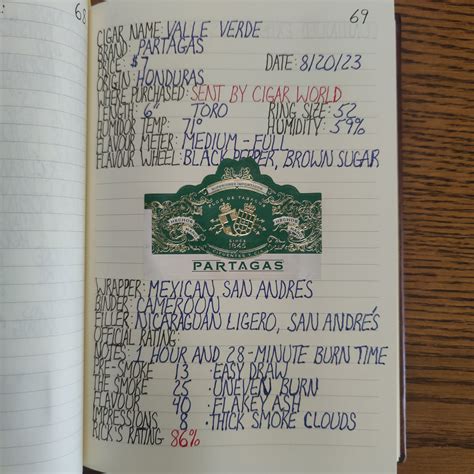 68
69
CIGAR NAME: VALLE VERDE
BRAND: PARTAGAS
PRICE: $7 DATE: 8/20/23
ORIGIN: HONDURAS
WHERE PURCHASED: SENT BY CIGAR WORLD
LENGTH: 6" TORO RING SIZE: 52
HUMIDOR TEMP: 71° HUMIDITY: 59%
FLAVOUR METER: MEDIUM - FULL
FLAVOUR WHEEL: BLACK PEPPER, BROWN SUGAR
HECHOS
HECHOS
SINCE
1845
PARTAGAS
WRAPPER: MEXICAN SAN ANDRES
BINDER: CAMEROON
FILLER: NICARAGUAN LIGERO, SAN ANDRÉS
OFFICIAL RATING:
NOTES: 1 HOUR AND 28-MINUTE BURN TIME
PRE-SMOKE 13 · EASY DRAW
THE SMOKE 25 · UNEVEN BURN
FLAVOUR 40 · FLAKEY ASH
IMPRESSIONS 8 · THICK SMOKE CLOUDS
RICK'S RATING 86%